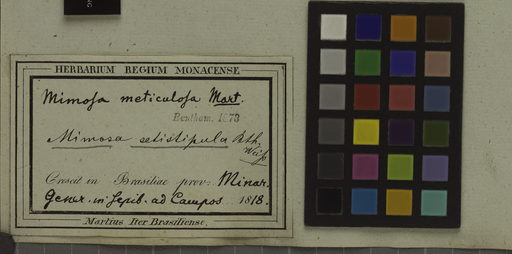 HERBARIUM REGIUM MONACENSE.
Mimosa meticulosa Mart.
Bentham, 1873
Mimosa setistipula Bth.
Crescit in Brasiliae prov: Minar.
Gener. in Sepib. ad Campos 1818.
Martius Iter Brasiliense.